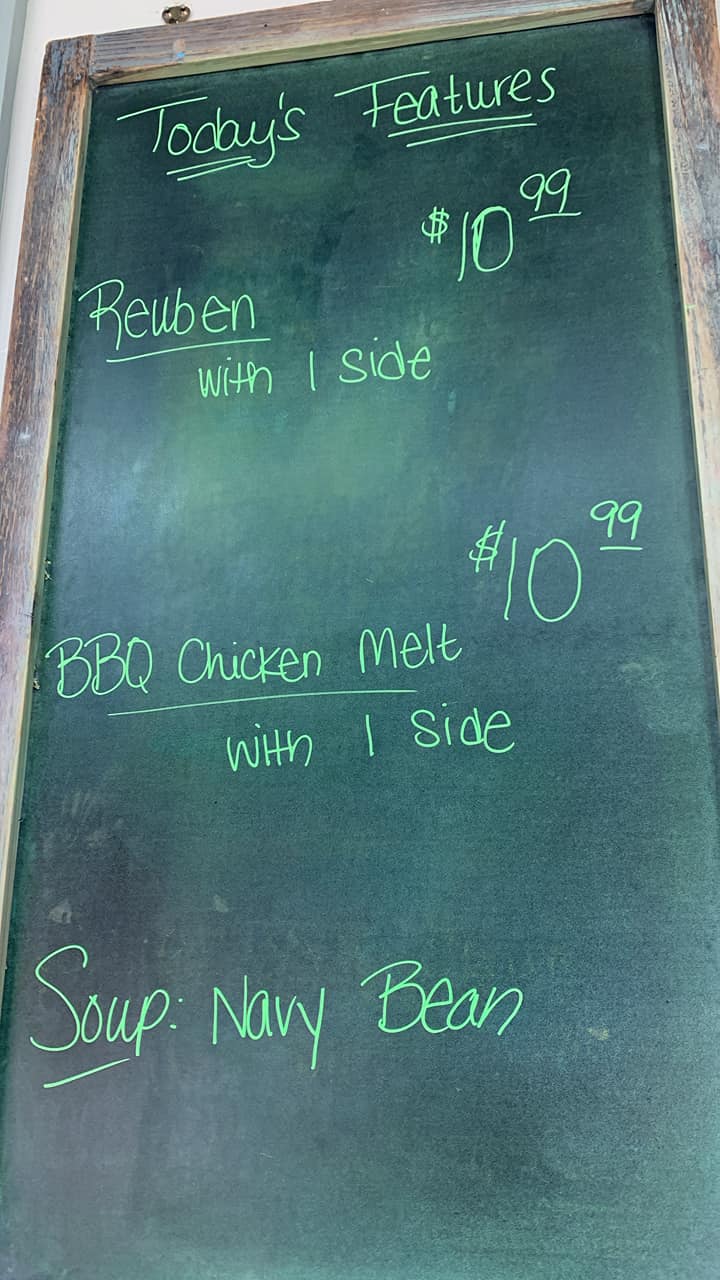 Today's Features
$10 99
Reuben
with 1 side
$10 99
BBQ Chicken Melt
with 1 side
Soup: Navy Bean